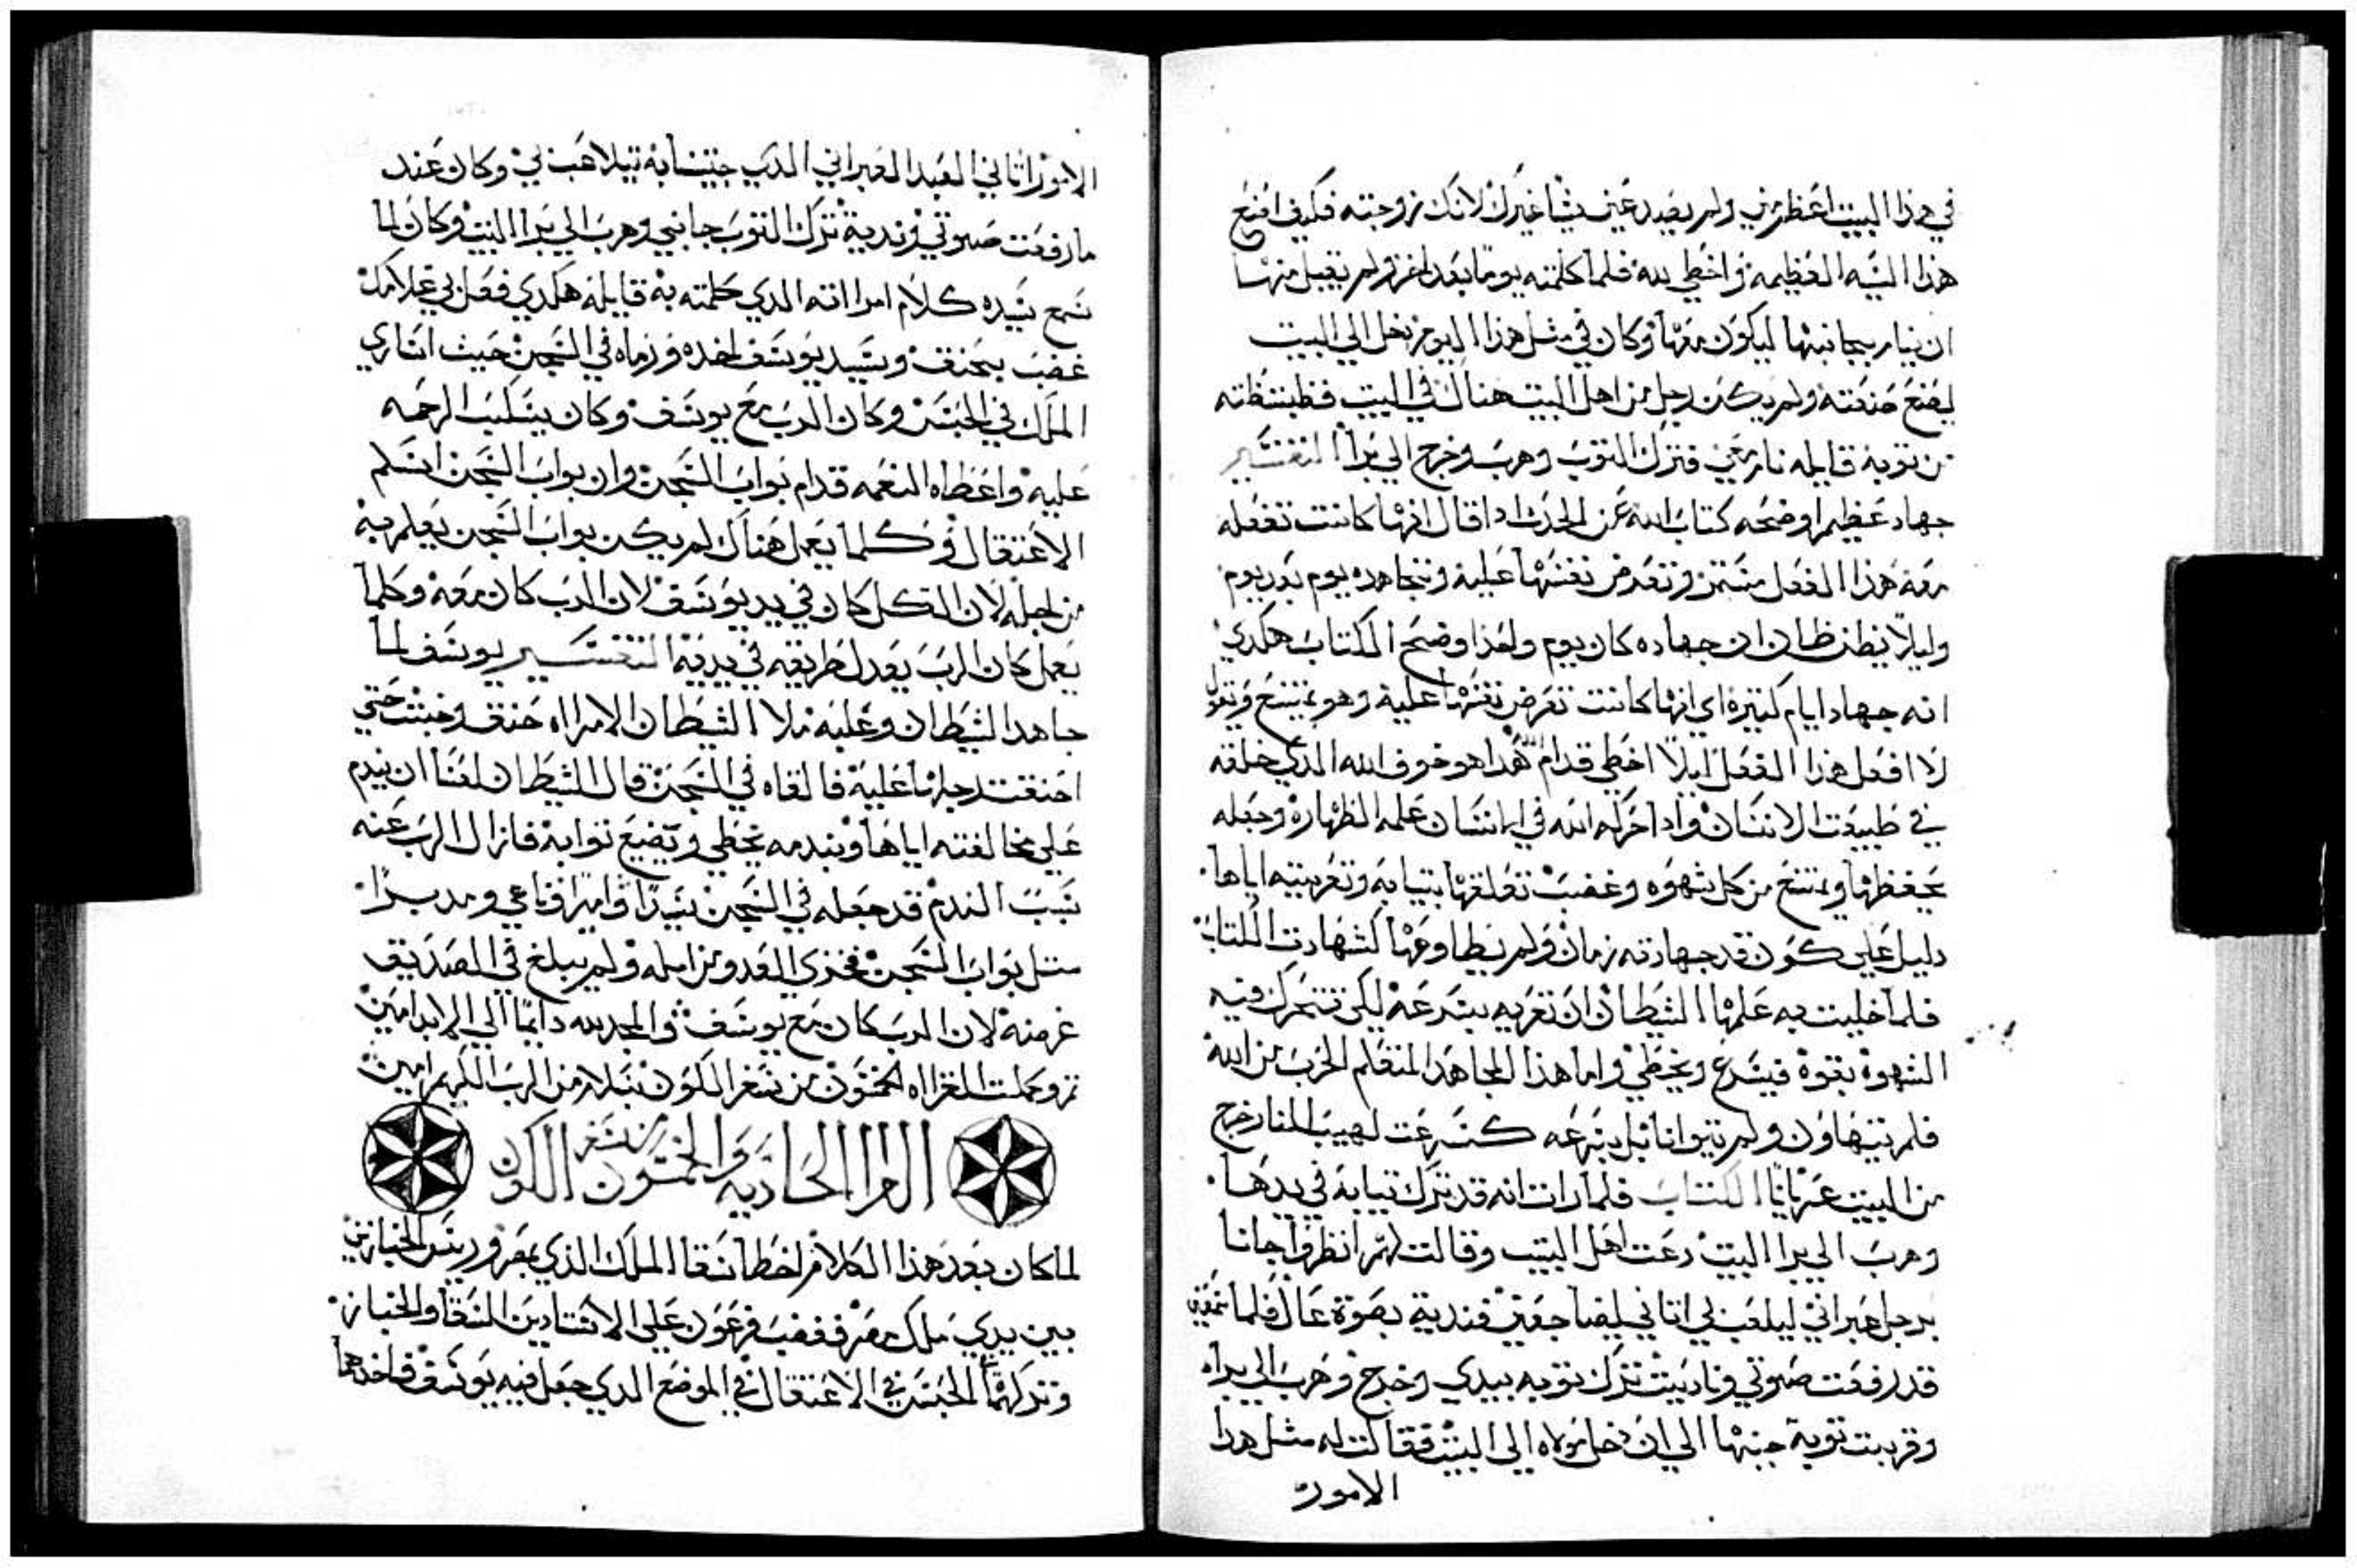 في هذا البيت اعظم مني ولم يصدر عني شيا غيرك لانك زوجته فكيف اصنع
هذا السيه العظيمه واخطي لله فلما كلمته يومًا بعد اخر ولم تقبل منها
ان ينام بجانبها ليكون معها وكان في مثل هذا اليوم دخل الي البيت
ليصنع صنعته ولم يكن رجل من اهل البيت هناك في البيت فظبطته
من توبه قايله نام معي فترك التوب وهرب وخرج الي برا التفسير
جهاد عظيم اوضحه كتاب الله عن الحدث اذا قال انها كانت تفعله
معه هذا الفعل وتعرض نفسها عليه وتجاهده يوم بعد يوم
وليلا يظن ظان ان جهاده كان يوم ولهذا وضح الكتاب هكدي
انه جهاد ايام كتيره اي انها كانت تعرض نفسها عليه وهو يمتنع ويقول
لا افعل هذا الفعل ليلا اخطي قدام الله هدا هو خوف الله الدي خلقه
في طبيعت الانسان وادا حركه الله في انسان علمه الطهاره وجعله
يحفظها ويمتنع من كل شهوه وغضب تعلقها بتيابه وتعريته اياها
دليل علي كون قد جهادته زمان ولم يطاوعها كشهادت الكتاب
فلما خليت به علمها الشيطان ان تعريه بسرعه لكي تتحرك فيه
الشهوه بقوه فيسرع ويخطي واما هذا المجاهد المتعلم الحرب من الله
فلم يتهاون ولم يتوانا بل بسرعه كسرعت لهيب النار خرج
من البيت عريانًا الكتاب فلما رات انه قد ترك تيابه في يدها
وهرب الي برا البيت دعت اهل البيت وقالت لهم انظروا جانا
برجل عبراني ليلعب بي اتاني ليضاجعني فنديت بصوة عال فلما سمعني
قد رفعت صوتي وناديت ترك توبه بيدي وخرج وهرب الي براه
وقربت توبه جنبها الي ان دخل مولاه الي البيت فقالت له مثل هدا
الامور
الامور اتاني العبد العبراني الدي جيت به تيلاعب بي وكان عند
ما رفعت صوتي وندية ترك التوب جانبي وهرب الي برا البيت وكان لما
سمع سيده كلام امراته الدي كلمته به قايله هكدي فعل بي غلامك
غضب بحنق وسيد يوسف اخده ورماه في السجن حيث اساري
الملك في الحبس وكان الرب مع يوسف وكان يسكب الرحمه
عليه واعطاه النعمه قدام بواب السجن وان بواب السجن اسلم
الاعتقال وكلما يعمل هناك لم يكن بواب السجن يعلم به
من اجله لان الكل كان في يد يوسف لان الرب كان معه وكلما
يعمل كان الرب يعدل طريقه في يديه التفسير يوسف لما
جاهد الشيطان وغلبه ملا الشيطان الامراه حنق وخبث حتي
احنقت رجلها عليه فالقاه في السجن قال الشيطان لعنا ان يندم
علي مخالفته اياها وبندمه يخطي ويضيع توابه فازال الرب عنه
سبب الندم قد جعله في السجن سيدًا وامرًا وناهي ومدبرًا
متل بواب السجن فخزي العدو من امله ولم يبلغ في الصديق
غرضه لان الرب كان مع يوسف والمجد لله دايمًا الي الابد امين
تم وكملت القراه الخمسون من سفر الكون بسلام من الرب الكريم امين
القرا الحاديه والخمسون من سفر الكون
لما كان بعد هذا الكلام اخطا سقا الملك الذي بمصر وريس الخبازين
بين يدي ملك مصر فغضب فرعون علي الاستادين السقا والخباز
وتركهما الحبس في الاعتقال في الموضع الدي جعل فيه يوسف فاخدهما